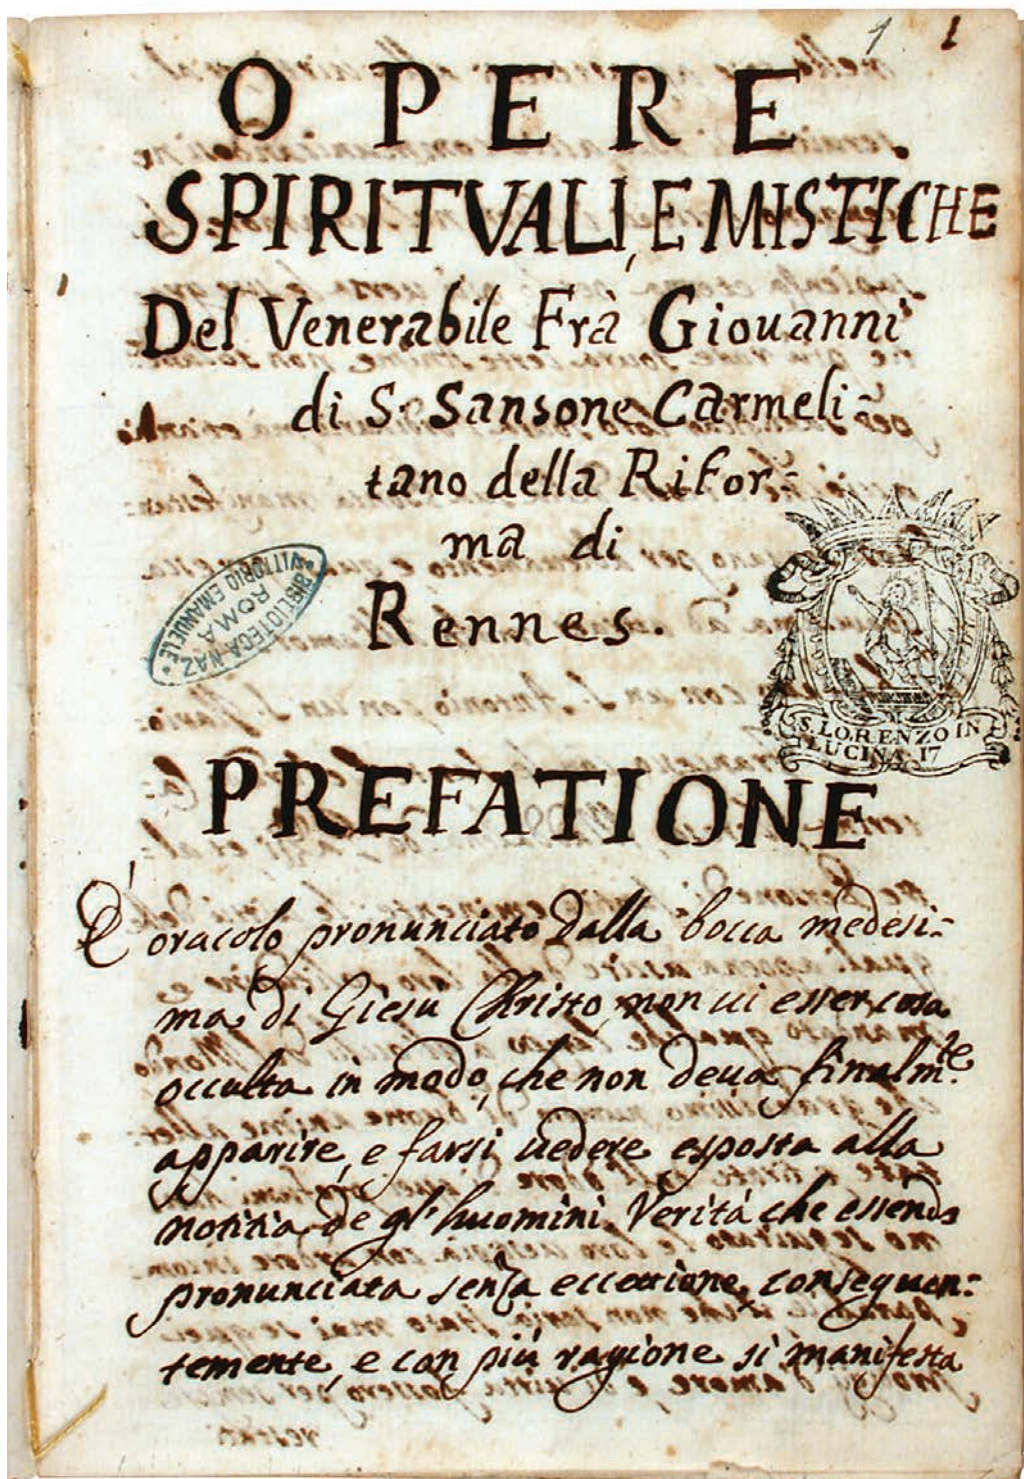 1. 1
OPERE
SPIRITVALI, E MISTICHE
Del Venerabile Frà Giouanni
di S. Sansone Carmeli-
tano della Rifor-
ma di
Rennes.
BIBLIOTECA NAZ.
ROMA
VITTORIO EMANUELE
S. LORENZO IN
LUCINA 17
PREFATIONE
É oracolo pronunciato dalla bocca medesi-
ma di Giesu Christo, non ui esser cosa
occulta in modo, che non deua finalm.te
apparire, e farsi uedere esposta alla
notitia de gl'huomini. Verità che essendo
pronunciata senza eccettione, conseguen-
temente, e con più ragione si manifesta